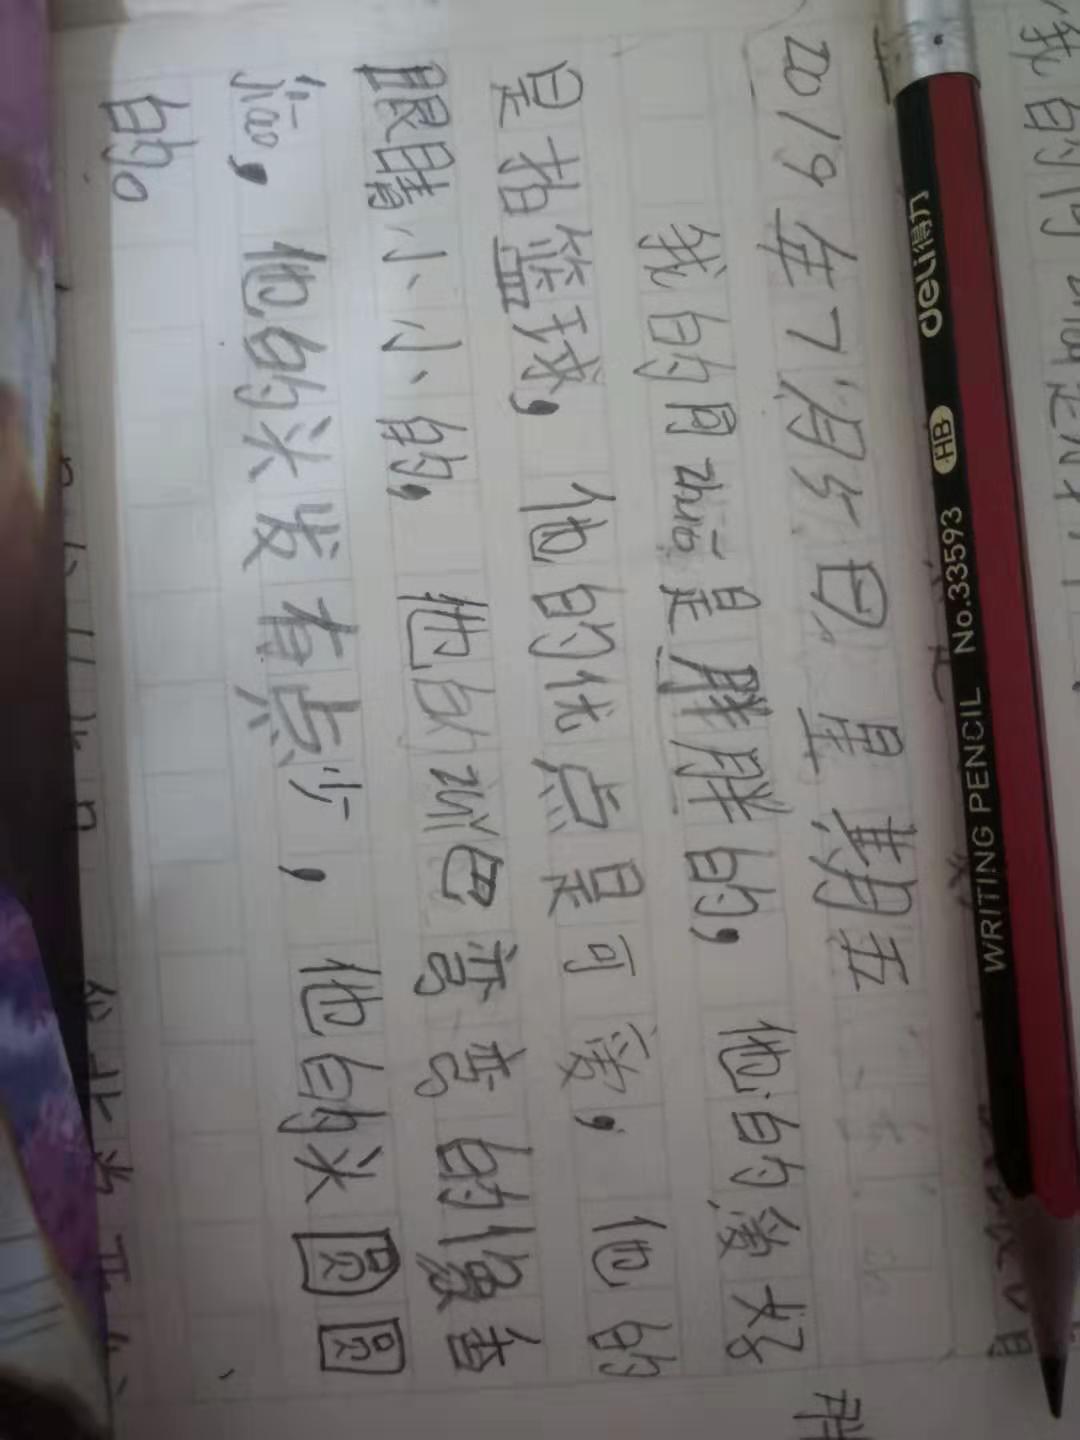 2019年7月5日 星期五
我的同zhuō是胖胖的，他的爱好
是拍篮球，他的优点是可爱，他的
眼睛小小的，他的zuǐ巴弯弯的像香
jiāo，他的头发有点少，他的头圆圆
的。
deli得力 HB No.33593 WRITING PENCIL